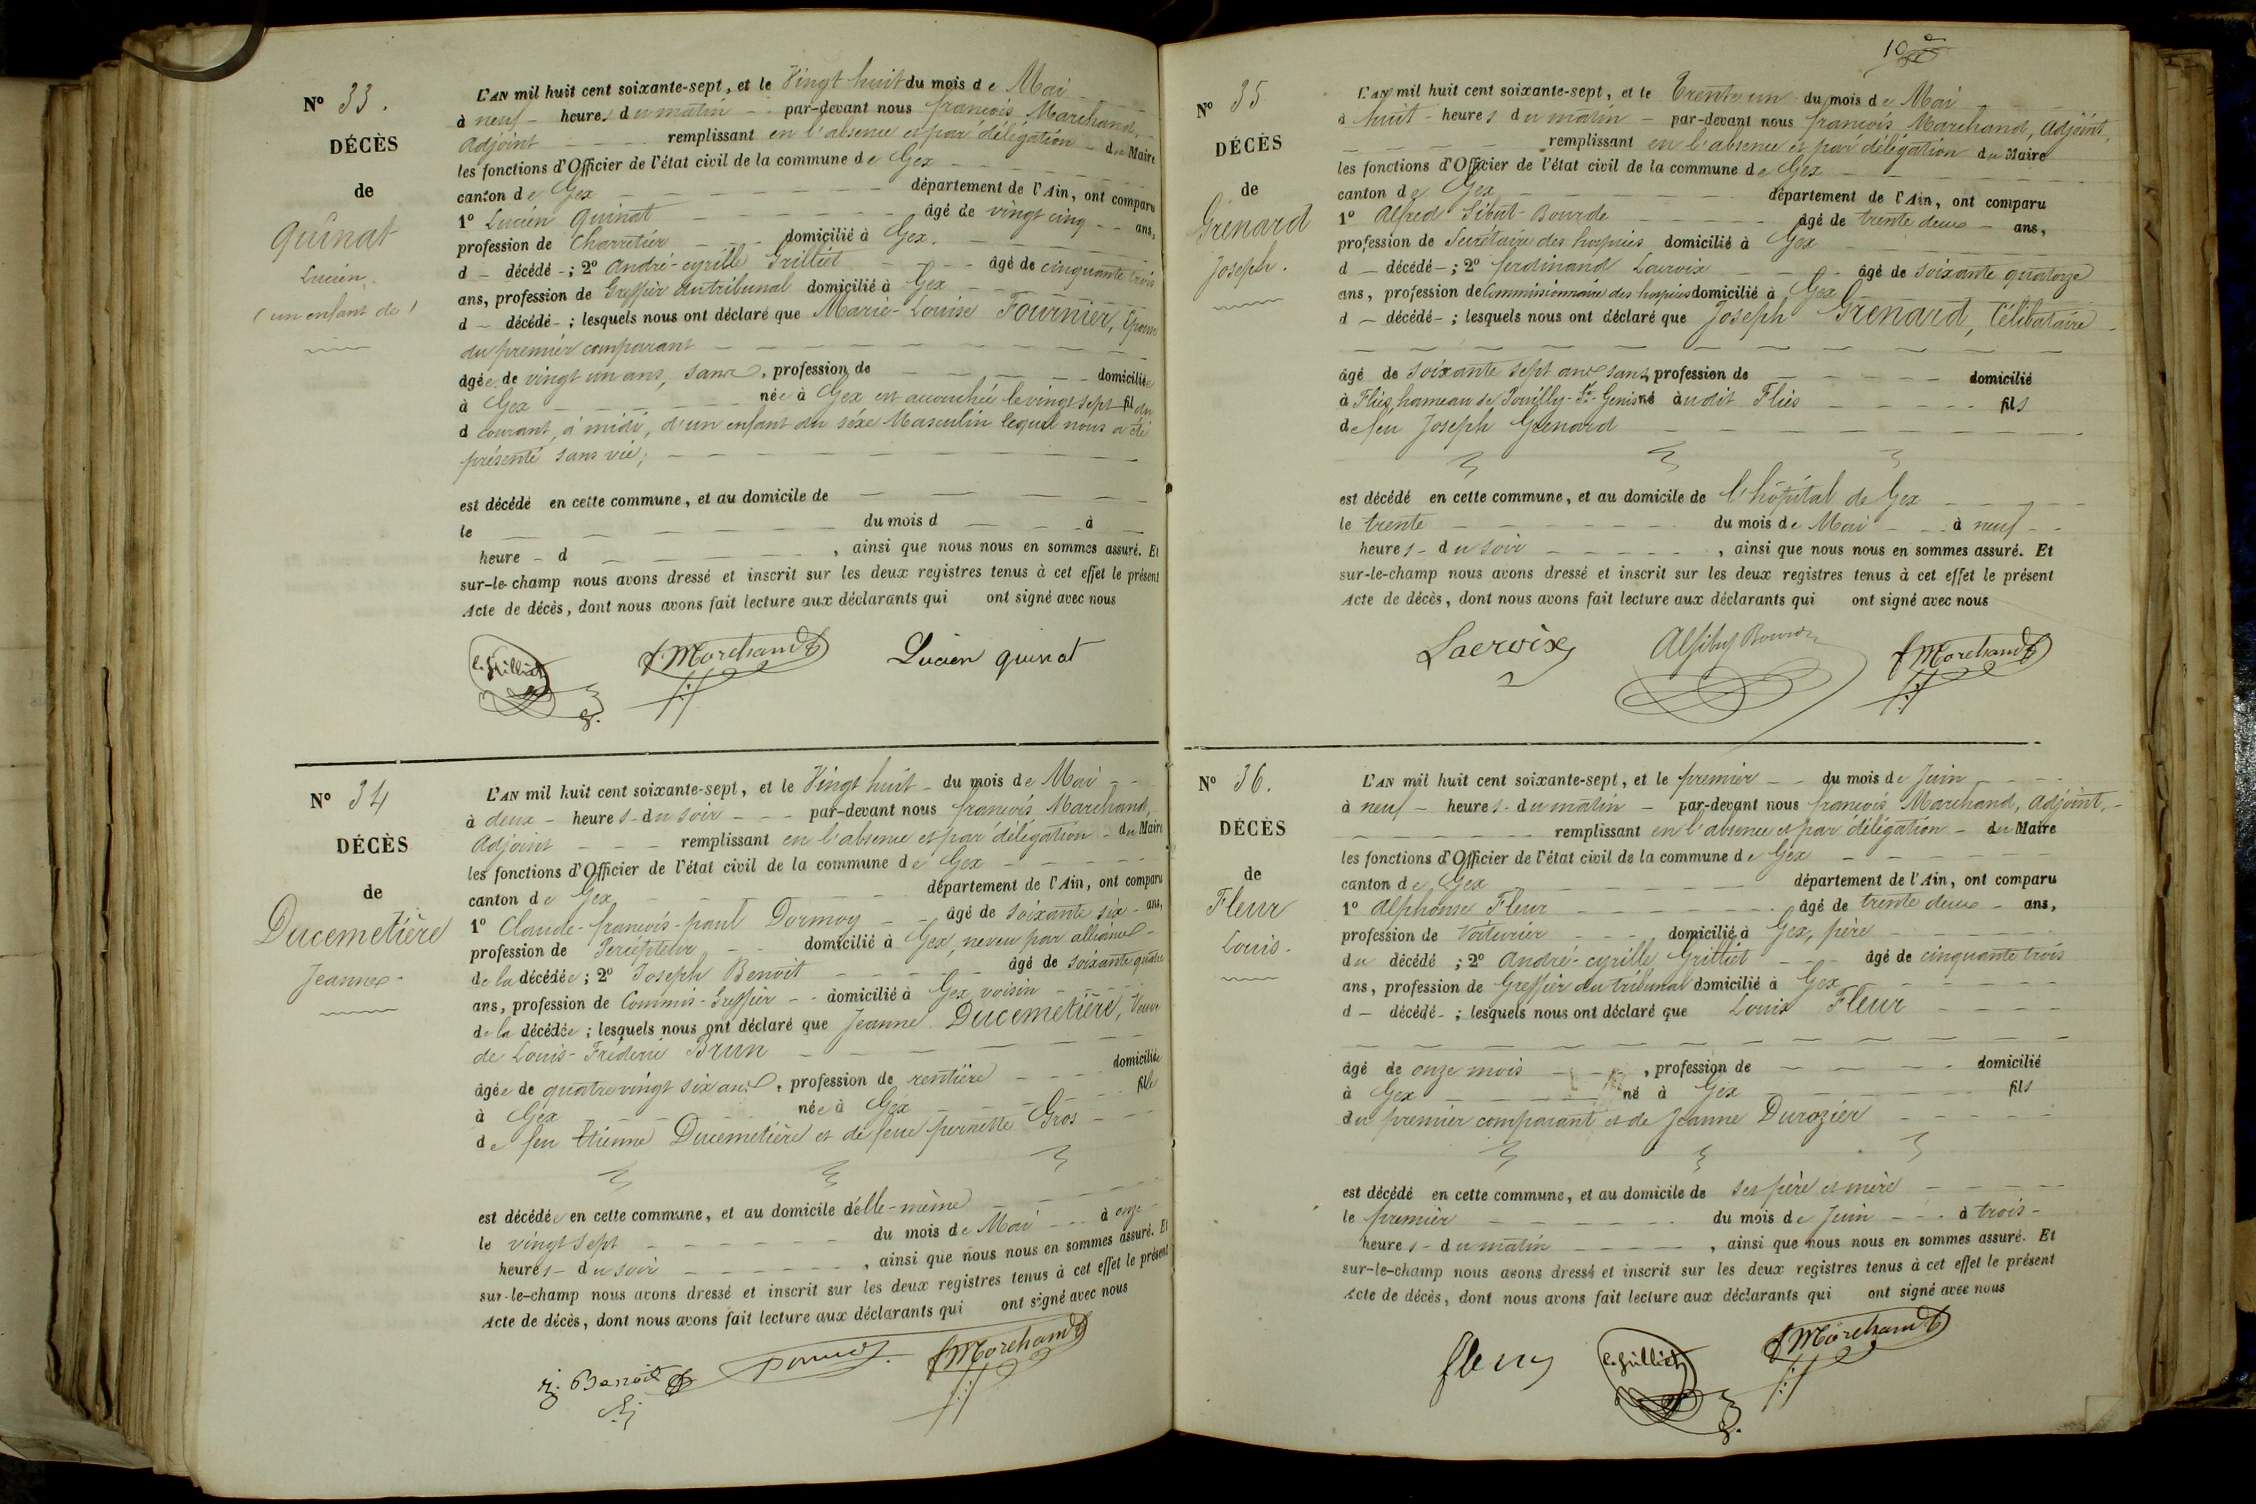 N° 33.
DÉCÈS
de
Quinat
Lucien.
(un enfant de)
L'AN mil huit cent soixante-sept, et le Vingt huit du mois de Mai
à neuf - heures du matin - par-devant nous françois Marchand,
Adjoint - remplissant en l'absence et par délégation - du Maire
les fonctions d'Officier de l'état civil de la commune de Gex
canton de Gex département de l'Ain, ont comparu
1° Lucien Quinat âgé de vingt cinq - ans,
profession de Charretier domicilié à Gex.
d - décédé - ; 2° André-cyrille Grilliet âgé de cinquante trois
ans, profession de Greffier du tribunal domicilié à Gex
d - décédé - ; lesquels nous ont déclaré que Marie-Louise Fournier, Epouse
du premier comparant
âgée de vingt un ans, sans, profession de domiciliée
à Gex née à Gex est accouchée le vingt sept fil du
d courant, à midi, d'un enfant du séxe Masculin lequel nous a été
présenté sans vie;
est décédé en cette commune, et au domicile de
le du mois d à
heure - d , ainsi que nous nous en sommes assuré. Et
sur-le-champ nous avons dressé et inscrit sur les deux registres tenus à cet effet le présent
Acte de décès, dont nous avons fait lecture aux déclarants qui ont signé avec nous
C. Grilliet f Marchand Lucien quinat
N° 34
DÉCÈS
de
Ducemetière
Jeanne -
L'AN mil huit cent soixante-sept, et le Vingt huit - du mois de Mai
à deux - heures du soir - par-devant nous françois Marchand,
Adjoint - remplissant en l'absence et par délégation - du Maire
les fonctions d'Officier de l'état civil de la commune de Gex
canton de Gex département de l'Ain, ont comparu
1° Claude-françois-paul Dormoy âgé de soixante six - ans,
profession de Percepteur domicilié à Gex, neveu par alliance -
de la décédée; 2° Joseph Benoit âgé de soixante quatre
ans, profession de Commis-Greffier - domicilié à Gex, voisin
de la décédée; lesquels nous ont déclaré que Jeanne Ducemetière, Veuve
de Louis-Fréderic Brun
âgée de quatre vingt six ans, profession de rentière domiciliée
à Gex née à Gex fille
de feu Etienne Ducemetière et de feue pernette Gros
est décédée en cette commune, et au domicile d'elle-même
le vingt sept du mois de Mai à onze
heures - du soir , ainsi que nous nous en sommes assuré. Et
sur-le-champ nous avons dressé et inscrit sur les deux registres tenus à cet effet le présent
Acte de décès, dont nous avons fait lecture aux déclarants qui ont signé avec nous
j. Benoit f Marchand
N° 35
DÉCÈS
de
Grenard
Joseph.
L'AN mil huit cent soixante-sept, et le Trente un du mois de Mai
à huit - heures du matin - par-devant nous françois Marchand, Adjoint,
remplissant en l'absence et par délégation du Maire
les fonctions d'Officier de l'état civil de la commune de Gex
canton de Gex département de l'Ain, ont comparu
1° Alfred Sibut-Bourde âgé de trente deux - ans,
profession de Secrétaire des hospices domicilié à Gex
d - décédé - ; 2° ferdinand Lacroix âgé de soixante quatorze
ans, profession de Commissionnaire des hospices domicilié à Gex
d - décédé - ; lesquels nous ont déclaré que Joseph Grenard, Célibataire
âgé de soixante sept ans sans, profession de domicilié
à Fliès, hameau de Pouilly-St-Genis né audit Fliès fils
de feu Joseph Grenard
est décédé en cette commune, et au domicile de l'hôpital de Gex
le trente du mois de Mai à neuf
heures - du soir , ainsi que nous nous en sommes assuré. Et
sur-le-champ nous avons dressé et inscrit sur les deux registres tenus à cet effet le présent
Acte de décès, dont nous avons fait lecture aux déclarants qui ont signé avec nous
Lacroix f Marchand
N° 36.
DÉCÈS
de
Fleur
Louis -
L'AN mil huit cent soixante-sept, et le premier du mois de Juin
à neuf - heures - du matin - par-devant nous françois Marchand, Adjoint,
remplissant en l'absence et par délégation - du Maire
les fonctions d'Officier de l'état civil de la commune de Gex
canton de Gex département de l'Ain, ont comparu
1° Alphonse Fleur âgé de trente deux - ans,
profession de Voiturier domicilié à Gex, père
du décédé ; 2° André-cyrille Grilliet âgé de cinquante trois
ans, profession de Greffier du tribunal domicilié à Gex
d - décédé - ; lesquels nous ont déclaré que Louis Fleur
âgé de onze mois , profession de domicilié
à Gex né à Gex fils
du premier comparant et de Jeanne Durozier
est décédé en cette commune, et au domicile de ses père et mère
le premier du mois de Juin à trois -
heures - du matin , ainsi que nous nous en sommes assuré. Et
sur-le-champ nous avons dressé et inscrit sur les deux registres tenus à cet effet le présent
Acte de décès, dont nous avons fait lecture aux déclarants qui ont signé avec nous
fleur C. Grilliet f Marchand